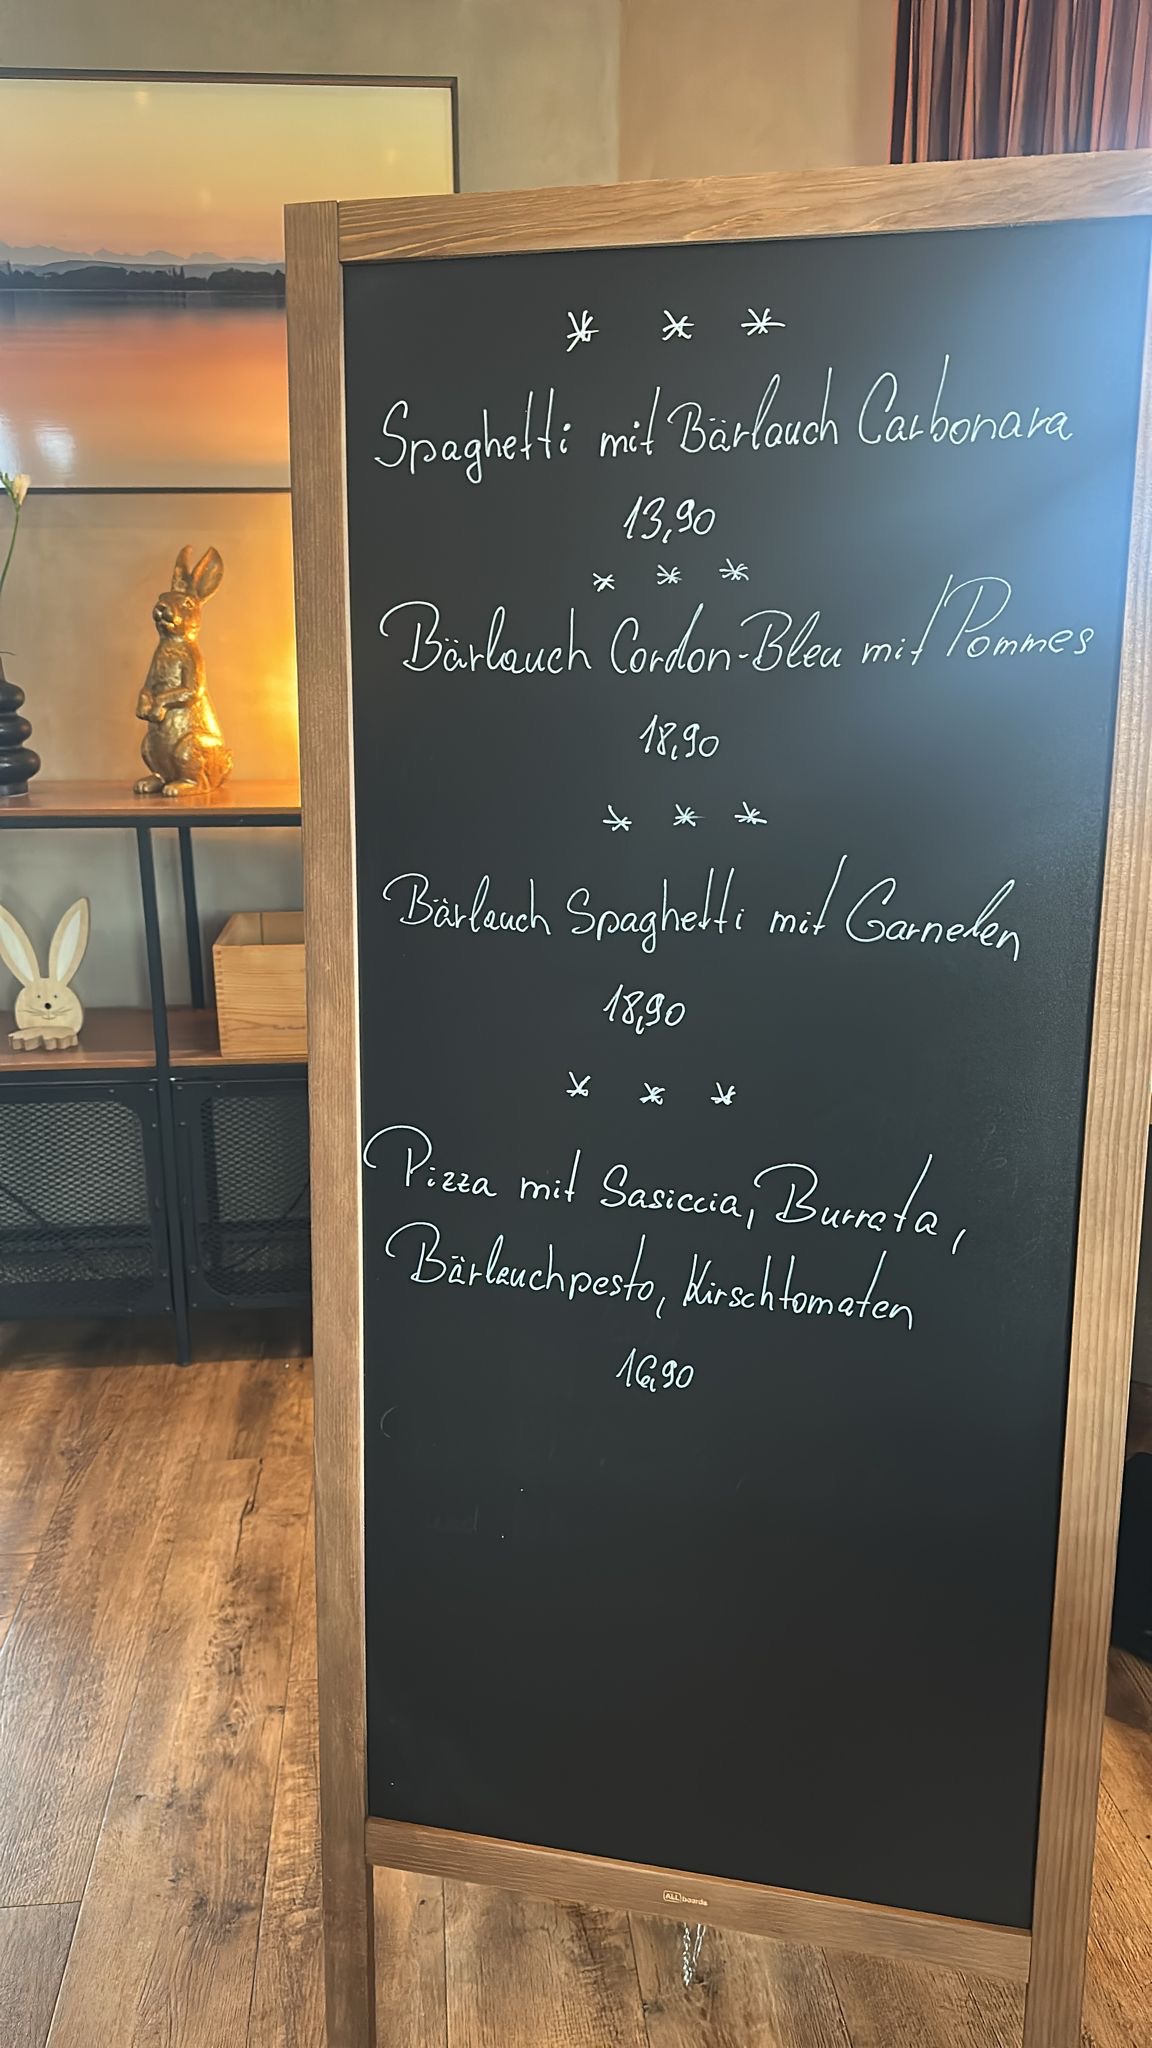 * * *
Spaghetti mit Bärlauch Carbonara
13,90
* * *
Bärlauch Cordon-Bleu mit Pommes
18,90
* * *
Bärlauch Spaghetti mit Garnelen
18,90
* * *
Pizza mit Sasiccia, Burrata,
Bärlauchpesto, Kirschtomaten
16,90
ALLboards